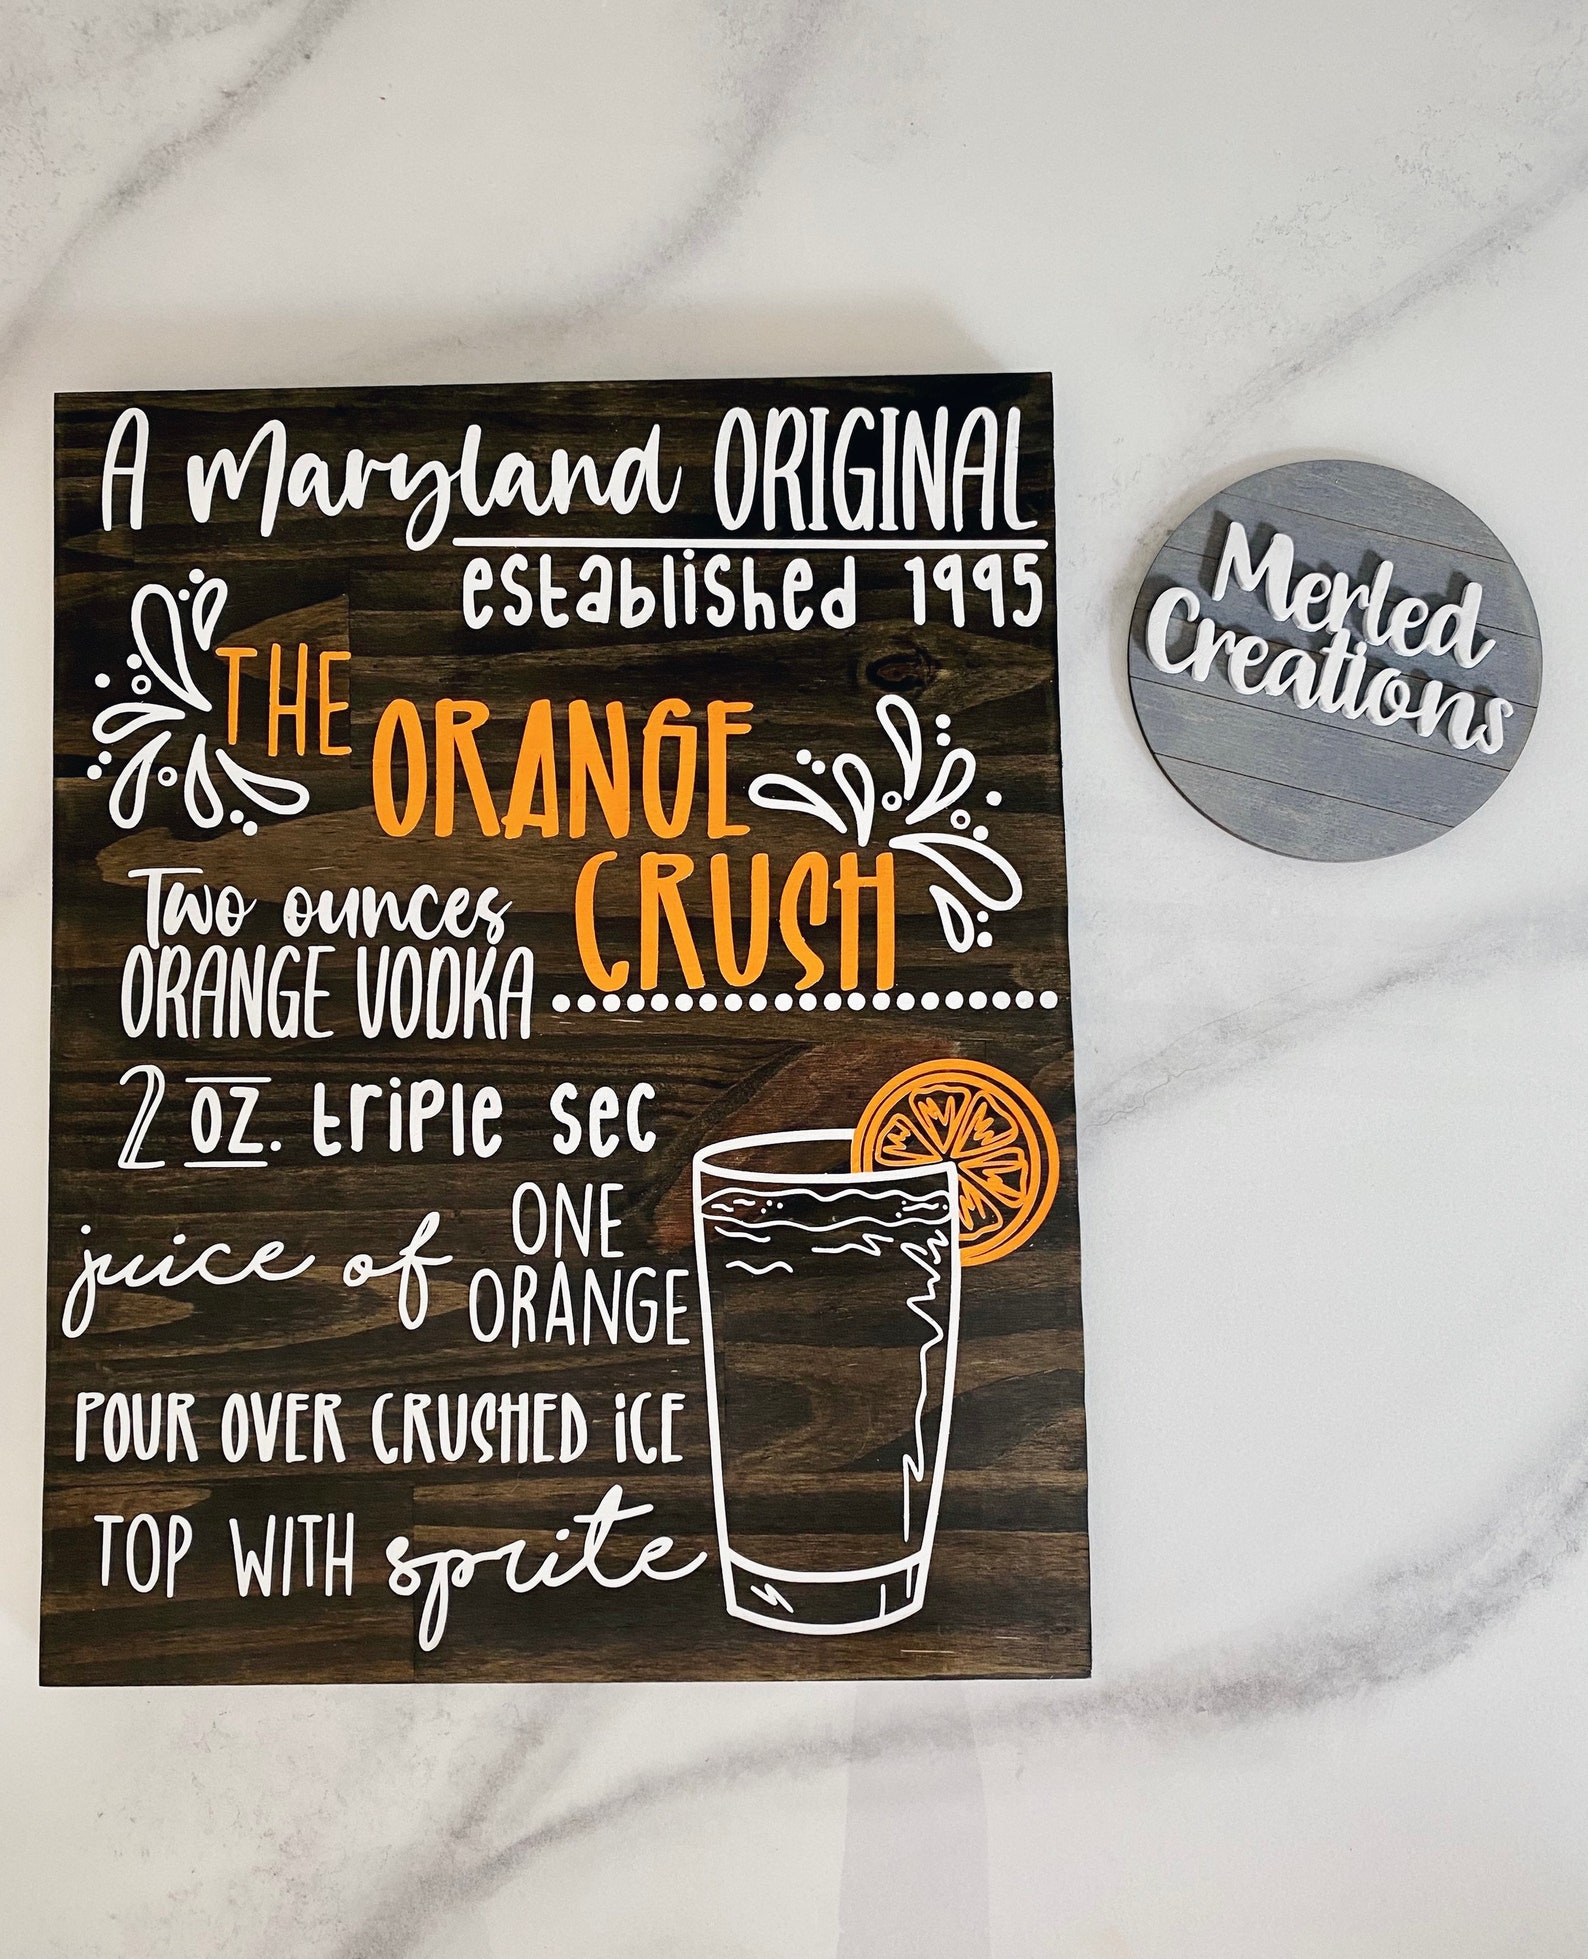 A Maryland ORIGINAL
established 1995
THE
ORANGE
CRUSH
Two ounces
ORANGE VODKA
2 oz. triple sec
juice of ONE
ORANGE
POUR OVER CRUSHED iCE
TOP WITH sprite
Merled
Creations